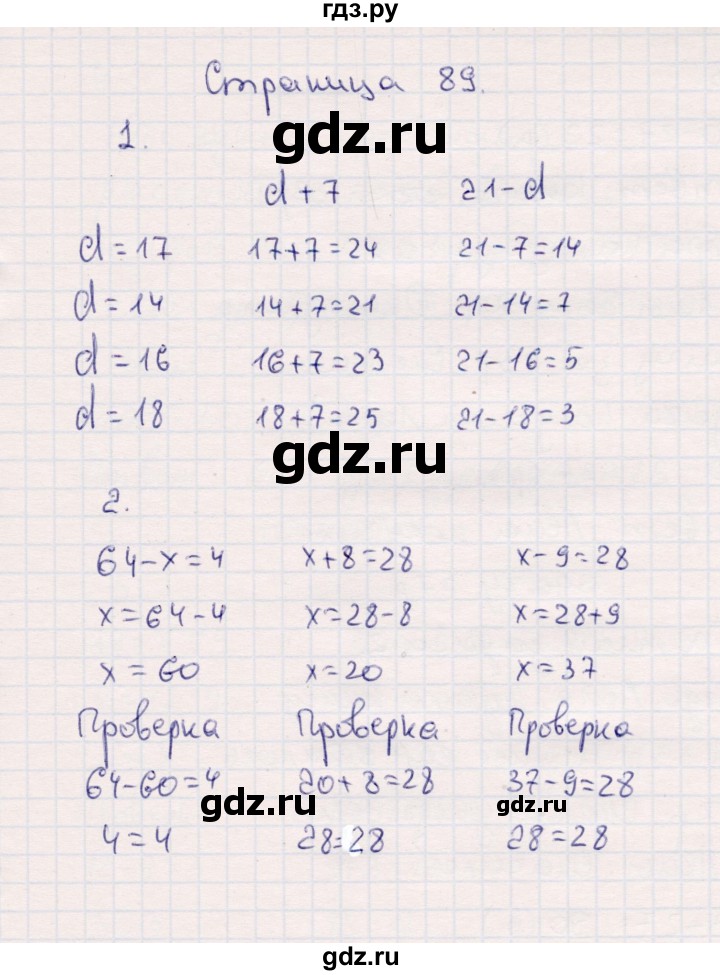 гдз.ру
Страница 89.
gdz.ru
1.
d+7 21-d
d=17 17+7=24 21-7=14
d=14 14+7=21 21-14=7
d=16 16+7=23 21-16=5
d=18 18+7=25 21-18=3
gdz.ru
2.
64-x=4 x+8=28 x-9=28
x=64-4 x=28-8 x=28+9
x=60 x=20 x=37
Проверка Проверка Проверка
64-60=4 20+8=28 37-9=28
gdz.ru gdz.ru
4=4 28=28 28=28
gdz.ru